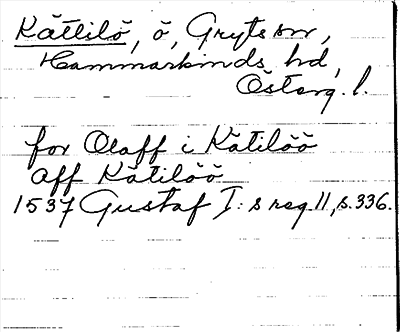 Kättilö, ö, Gryts sn,
Hammarkinds hd,
Österg. l.
for Olaff i Kätilöö
aff Kätilöö
1537 Gustaf I: s reg. 11, s. 336.